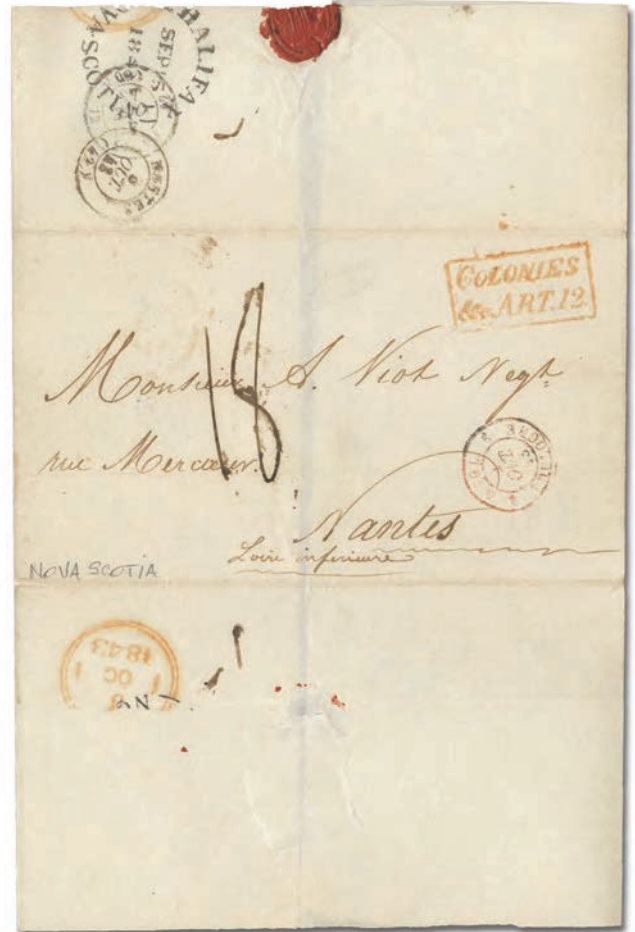 HALIFAX
SEP
184
NOVA-SCOTIA
NANTES
OCT
43
COLONIES
&c. ART. 12.
18
Monsieur A. Viot Negt.
rue Mercœur.
BOULOGNE
OCT
43
Nantes
Loire inferieure
NOVA SCOTIA
OC
1843